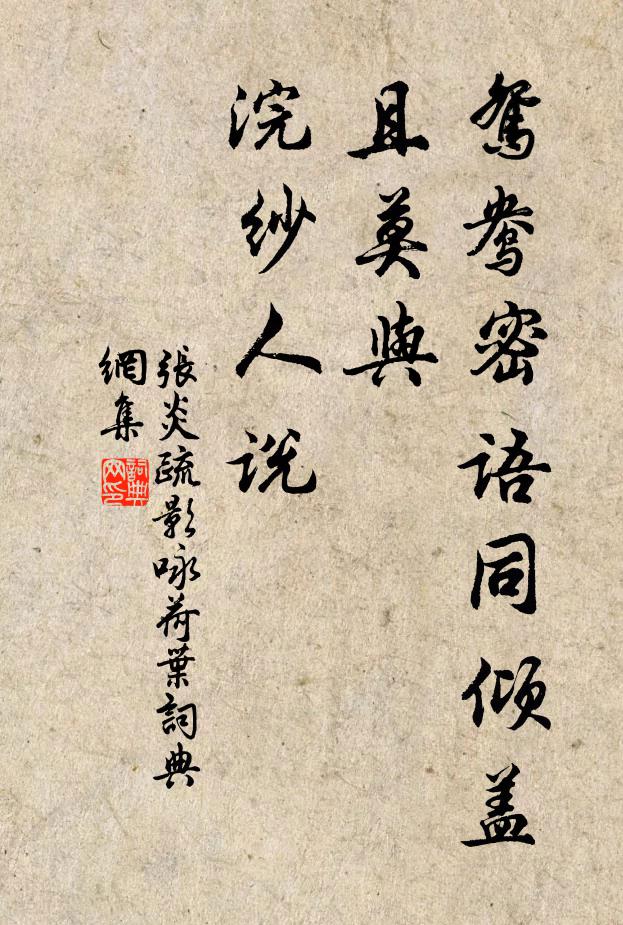 鴛鴦密语同倾盖
且莫與
浣紗人说
張炎疏影咏荷葉詞典
網集
詞典
网印